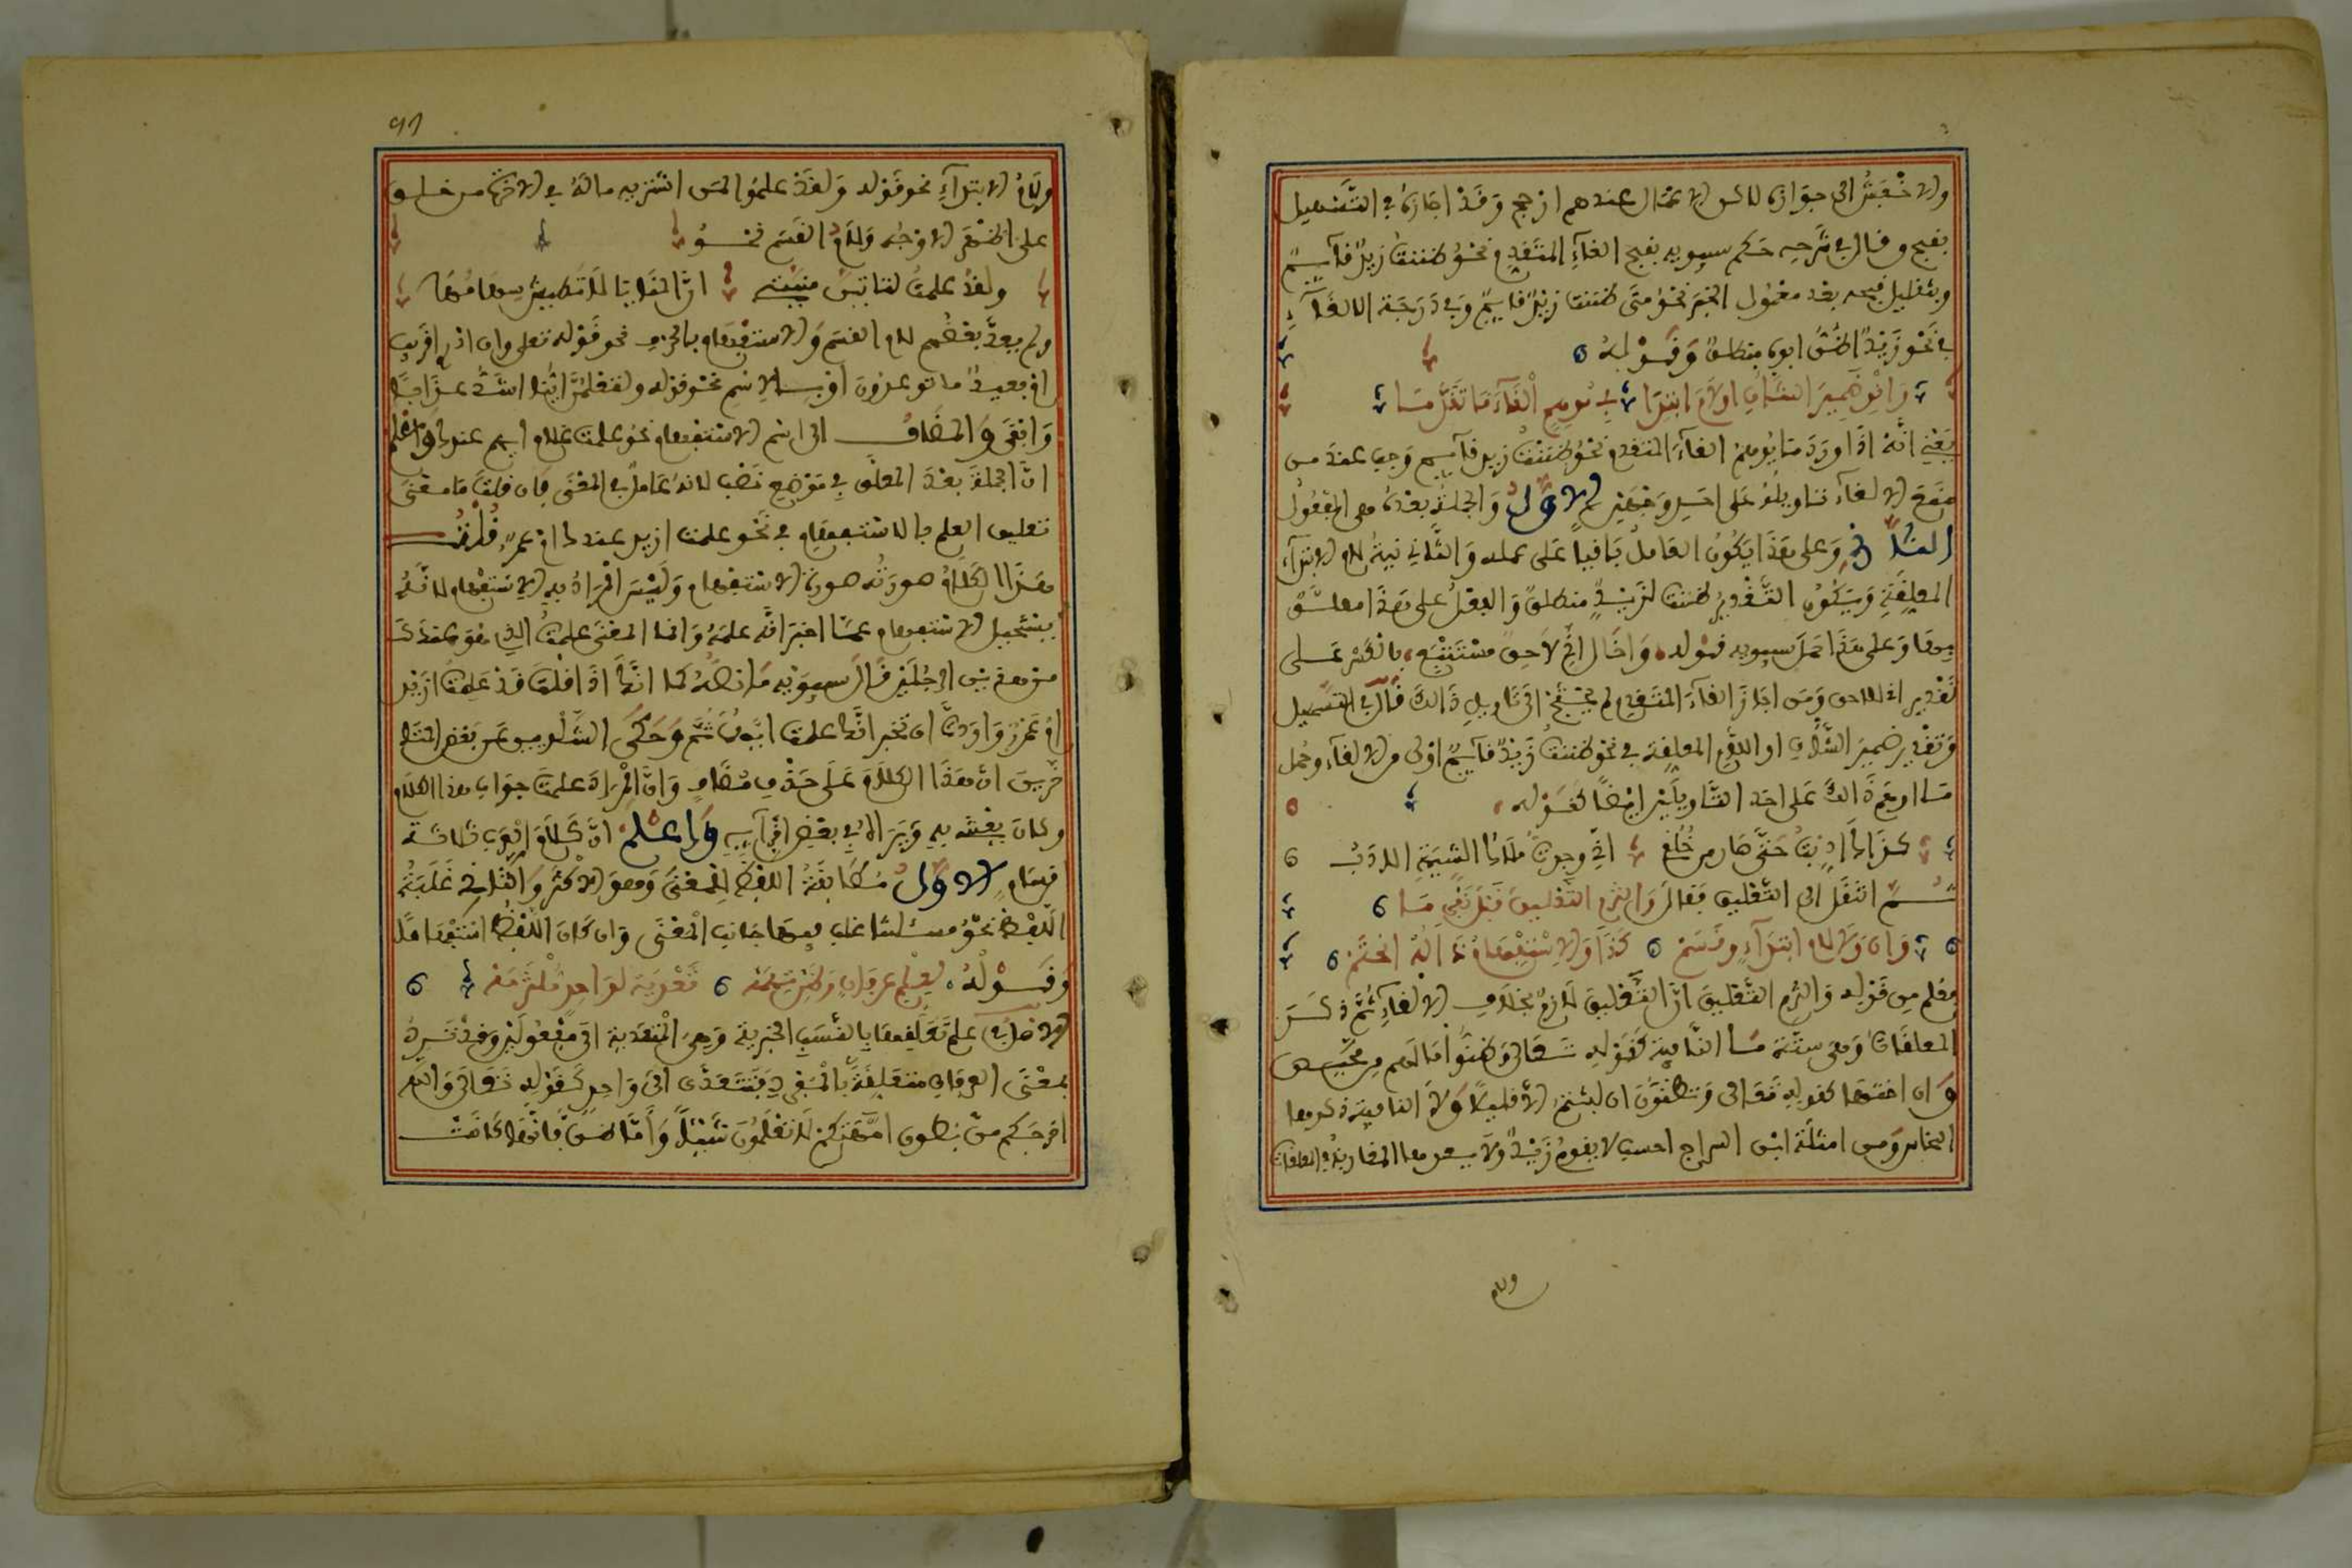 والاخفش الى جوازه لاكن الاعمال عندهم ارجح وقد اجازه في التسهيل
بقبح وقال في شرحه حكم سيبويه بقبح الغاء المتقدم نحو ظننت زيد قايم
وبتقليل قبحه بعد معمول الخبر نحو متى ظننت زيد قايم وفي درجة الالغاء
في نحو زيد اظن ابوه منطلق وقوله
وانو ضمير الشان اولام ابتدا في موهم الغاء ما تقدما
يعني انه اذا ورد ما يوهم الغاء المتقدم نحو ظننت زيد قايم وجب عند من
منع الالغاء تاويله على احد وجهين الاول والجملة بعده هي المفعول
الثاني وعلى هذا يكون العامل باقيا على عمله والثاني نية لام الابتداء
المعلقة ويكون التقدير ظننت لزيد منطلق والفعل على هذا معلق
وعلى هذا حمل سيبويه قوله واخال اني لاحق مستتبع بالكسر على
تقدير اني للاحق ومن اجاز الغاء المتقدم لم يحتج الى تاويل ذالك قال في التسهيل
وتقدير ضمير الشان او اللام المعلقة في نحو ظننت زيد قايم اولى من الالغاء وحمل
ما اوهم ذالك على احد التاويلين ايضا كقوله
كذاك ادبت حتى صار من خلقي اني وجدت ملاك الشيمة الادب
ثم انتقل الى التعليق فقال والتزم التعليق قبل نفي ما
وان ولا لام ابتداء وقسم كذا والاستفهام ذا له انحتم
فعلم من قوله والتزم التعليق ان التعليق لازم بخلاف الالغاء ثم ذكر
المعلقات وهي ستة ما النافية كقوله تعالى وظنوا ما لهم من محيص
وان اختها كقوله تعالى وتظنون ان لبثتم الا قليلا ولا النافية ذكرها
النحاس ومن امثلة ابن السراج احسب لا يقوم زيد ولا يعدها المغاربة في المعلقات
ولام
٩٦
ولام الابتداء نحو قوله ولقد علموا لمن اشتريه ما له في الاخرة من خلق
على اظهر الاوجه ولام القسم نحو
ولقد علمت لتاتين منيتي ان المنايا لا تطيش سهامها
ولم يعد بعضهم لام القسم والاستفهام بالحرف نحو قوله تعلى وان ادري اقريب
ام بعيد ما توعدون او بالاسم نحو قوله ولتعلمن اينا اشد عذابا
وابقى والمضاف الى اسم الاستفهام نحو علمت غلام ايهم عندك واعلم
ان الجملة بعد المعلق في موضع نصب لانه عامل في المعنى فان قلت ما معنى
تعليق العلم بالاستفهام في نحو علمت ازيد عندك ام عمرو قلت
هذا الكلام صورته صورة الاستفهام وليس المراد به الاستفهام لانه
يستحيل الاستفهام عما اخبر انه علمه وانما المعنى علمت الذي هو عندك
من هذين الرجلين قال سيبويه ما نصه كما انك اذا قلت قد علمت ازيد
ام عمرو اردت ان تخبر انك علمت ايهما ثم وحكى الشلوبين عن بعض المتاخ
خرين ان هذا الكلام على حذف مضاف وان المراد علمت جواب هذا الكلام
وكان يغتبط به ويراه في بعض اقرايه واعلم ان كلام العرب ثلاثة
اقسام الاول مطابقة اللفظ للمعنى وهو الاكثر والثاني غلبة
اللفظ نحو مسئلتنا غلب فيها جانب المعنى وان كان اللفظ استفهاما
وقوله لعلم عرفان وظن تهمه تعدية لواحد ملتزمه
الاصل في علم تعلقها بالنسب الخبرية وهي المتعدية الى مفعولين وقد ترد
بمعنى العرفان متعلقة بالمفرد فتتعدى الى واحد كقوله تعالى والله
اخرجكم من بطون امهتكم لا تعلمون شيئا واما ظن فانها كانت